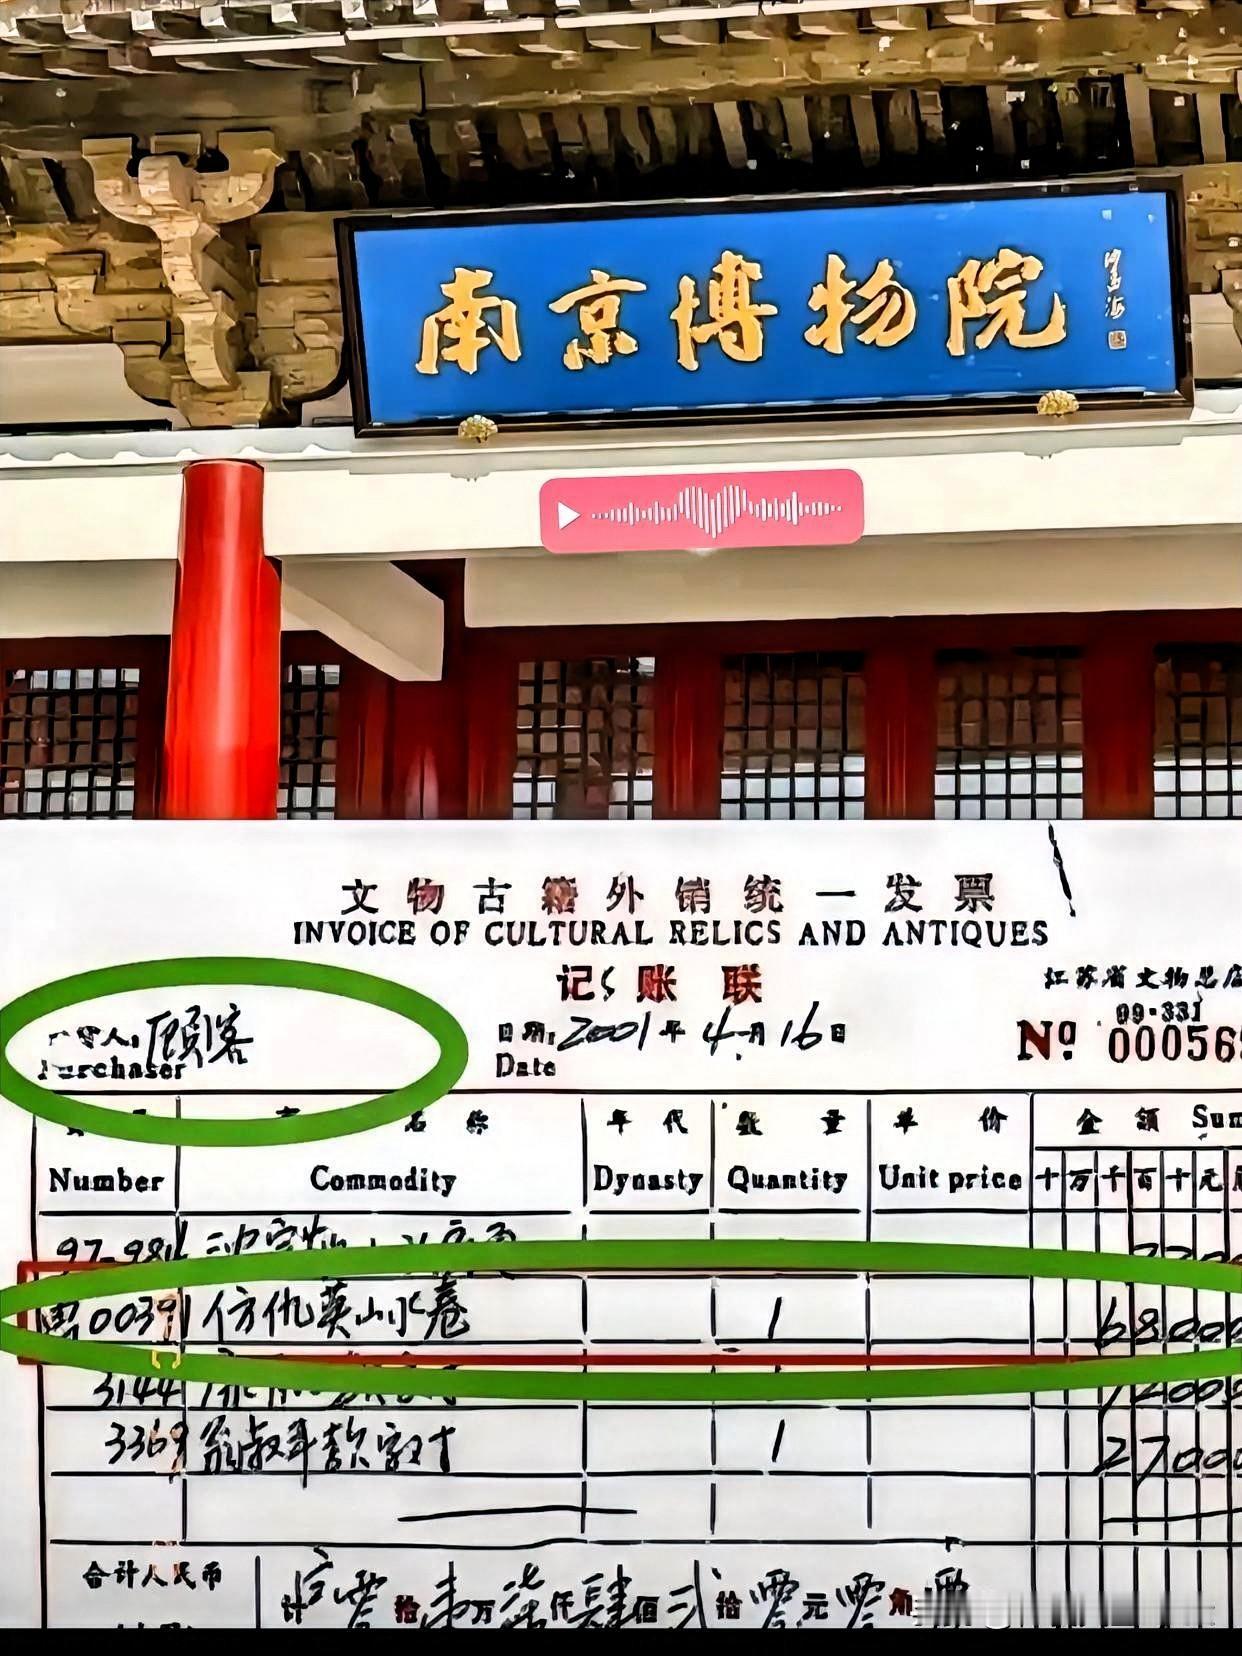 南京博物院
文物古籍外销统一发票
INVOICE OF CULTURAL RELICS AND ANTIQUES
记账联
江苏省文物总店
购货人: 顾客
Purchaser
日期: 2001年4月16日
Date
99·331
№ 00056
名称 年代 数量 单价 金额 Sum
Number Commodity Dynasty Quantity Unit price 十万千百十元
97-984
0039 仿仇英山水卷 1 68000
3144
3369 翁叔平款字对 1 27000
合计人民币
计 零拾 万柒仟肆佰 拾零元零角